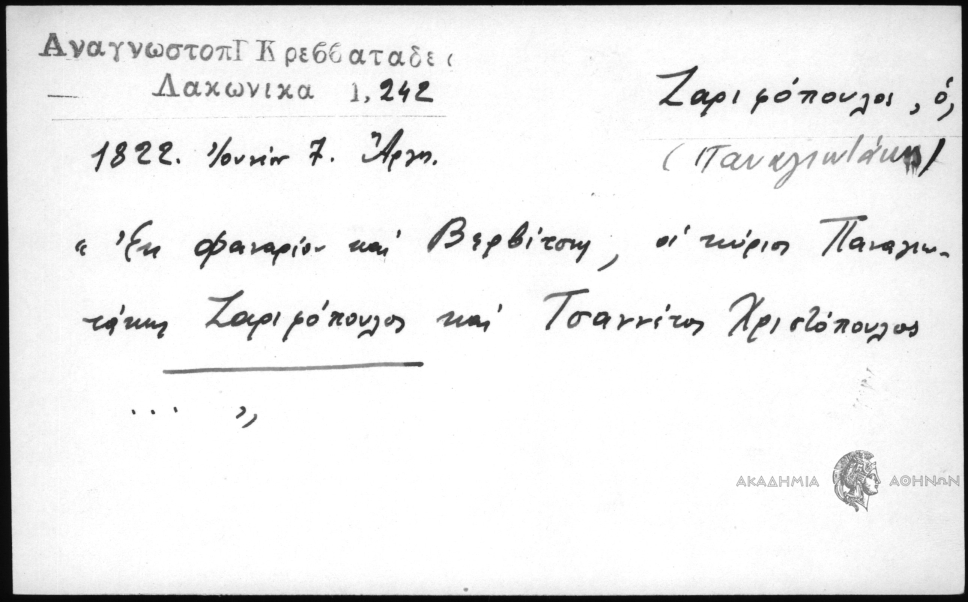 ΑναγνωστοπΓ Κρεββαταδε
Λακωνικα 1, 242
Ζαριφόπουλος, ὁ,
(Παναγιωτάκης)
1822. Ἰουνίου 7. Ἄργος.
" Ἐκ Φαναρίου καί Βερβίτσης, οἱ κύριοι Παναγιω-
τάκης Ζαριφόπουλος καί Τσαννέτος Χριστόπουλος
... "
ΑΚΑΔΗΜΙΑ ΑΘΗΝΩΝ